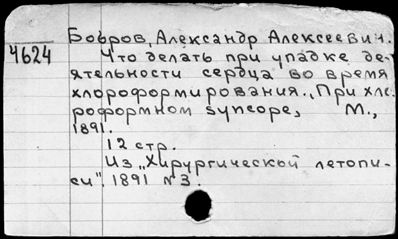 Бобров, Александр Алексеевич.
4624
Что делать при упадке де-
ятельности сердца во время
хлороформирования. „При хло-
роформном syncope, М.,
1891.
12 стр.
Из „Хирургической летопи-
си". 1891 № 3.